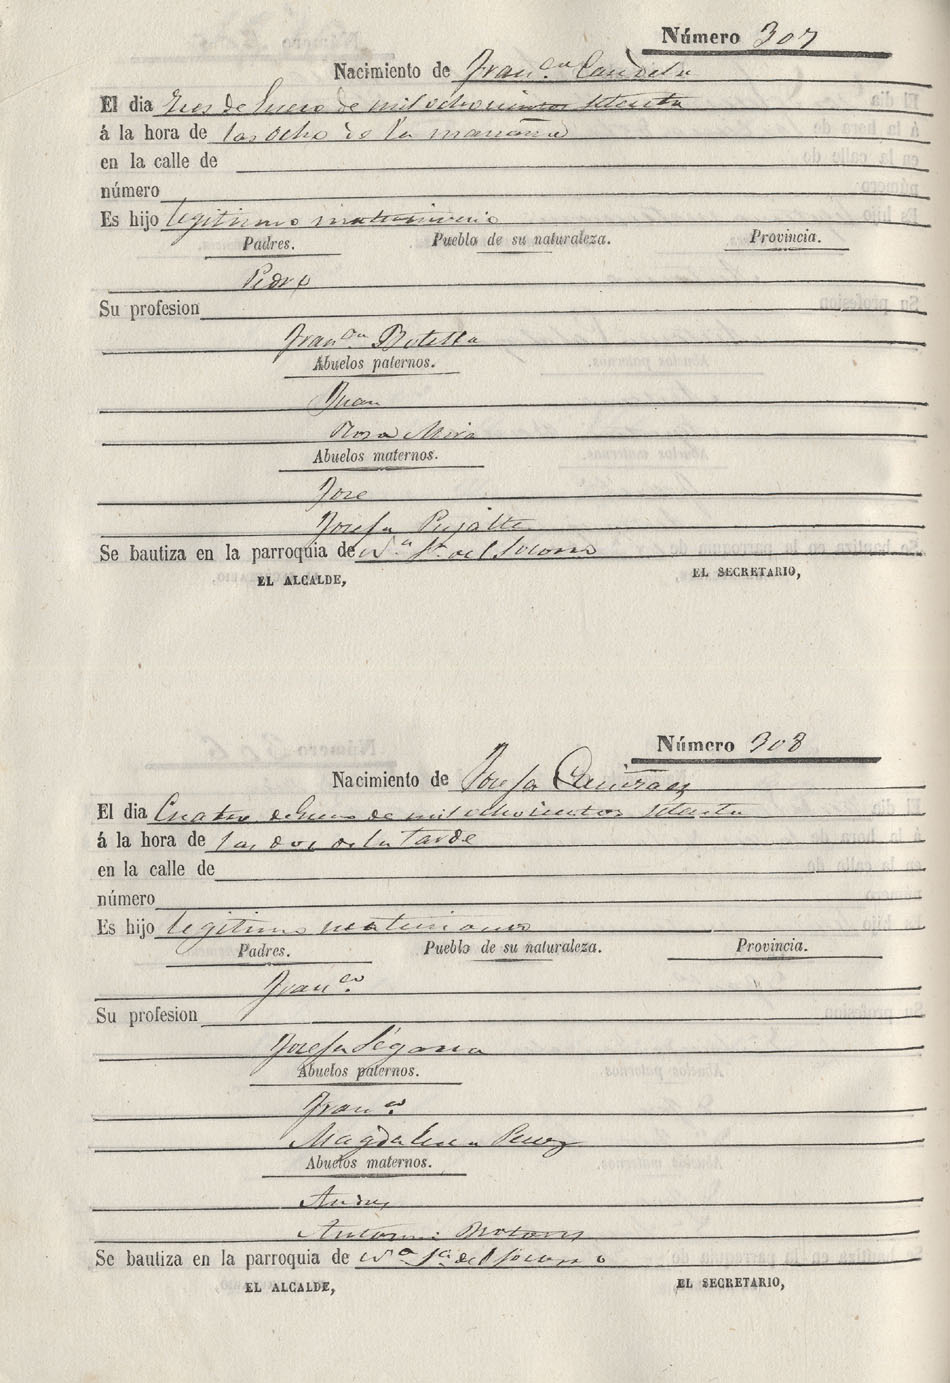 Número 307
Nacimiento de Fran.ca Candela
El dia tres de Enero de mil ochocientos setenta
á la hora de las ocho de la mañana
en la calle de
número
Es hijo legitimo matrimonio
Padres. Pueblo de su naturaleza. Provincia.
Pedro
Su profesion
Fran.ca Botella
Abuelos paternos.
Juan
Rosa Mira
Abuelos maternos.
Jose
Josefa Pujalte
Se bautiza en la parroquia de N.a S.a del Socorro
EL ALCALDE, EL SECRETARIO,
Número 308
Nacimiento de Josefa
El dia Cuatro de Enero de mil ochocientos setenta
á la hora de las dos de la tarde
en la calle de
número
Es hijo legitimo matrimonio
Padres. Pueblo de su naturaleza. Provincia.
Fran.co
Su profesion
Josefa Segarra
Abuelos paternos.
Fran.co
Magdalena Perez
Abuelos maternos.
Andres
Antonia Botons
Se bautiza en la parroquia de N.a S.a del Socorro
EL ALCALDE, EL SECRETARIO,